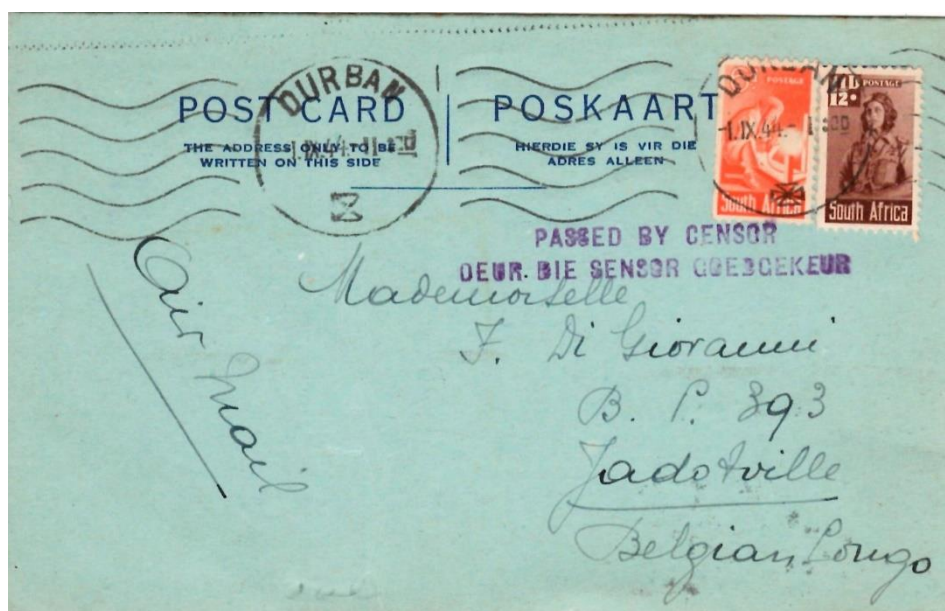 DURBAN
POST CARD
THE ADDRESS ONLY TO BE
WRITTEN ON THIS SIDE
POSKAART
HIERDIE SY IS VIR DIE
ADRES ALLEEN
DURBAN
1.IX.44.
POSTAGE
South Africa
POSTAGE
South Africa
PASSED BY CENSOR
DEUR DIE SENSOR GOEDGEKEUR
Air Mail
Mademoiselle
J. Di Giovanni
B. P. 393
Jadotville
Belgian Congo